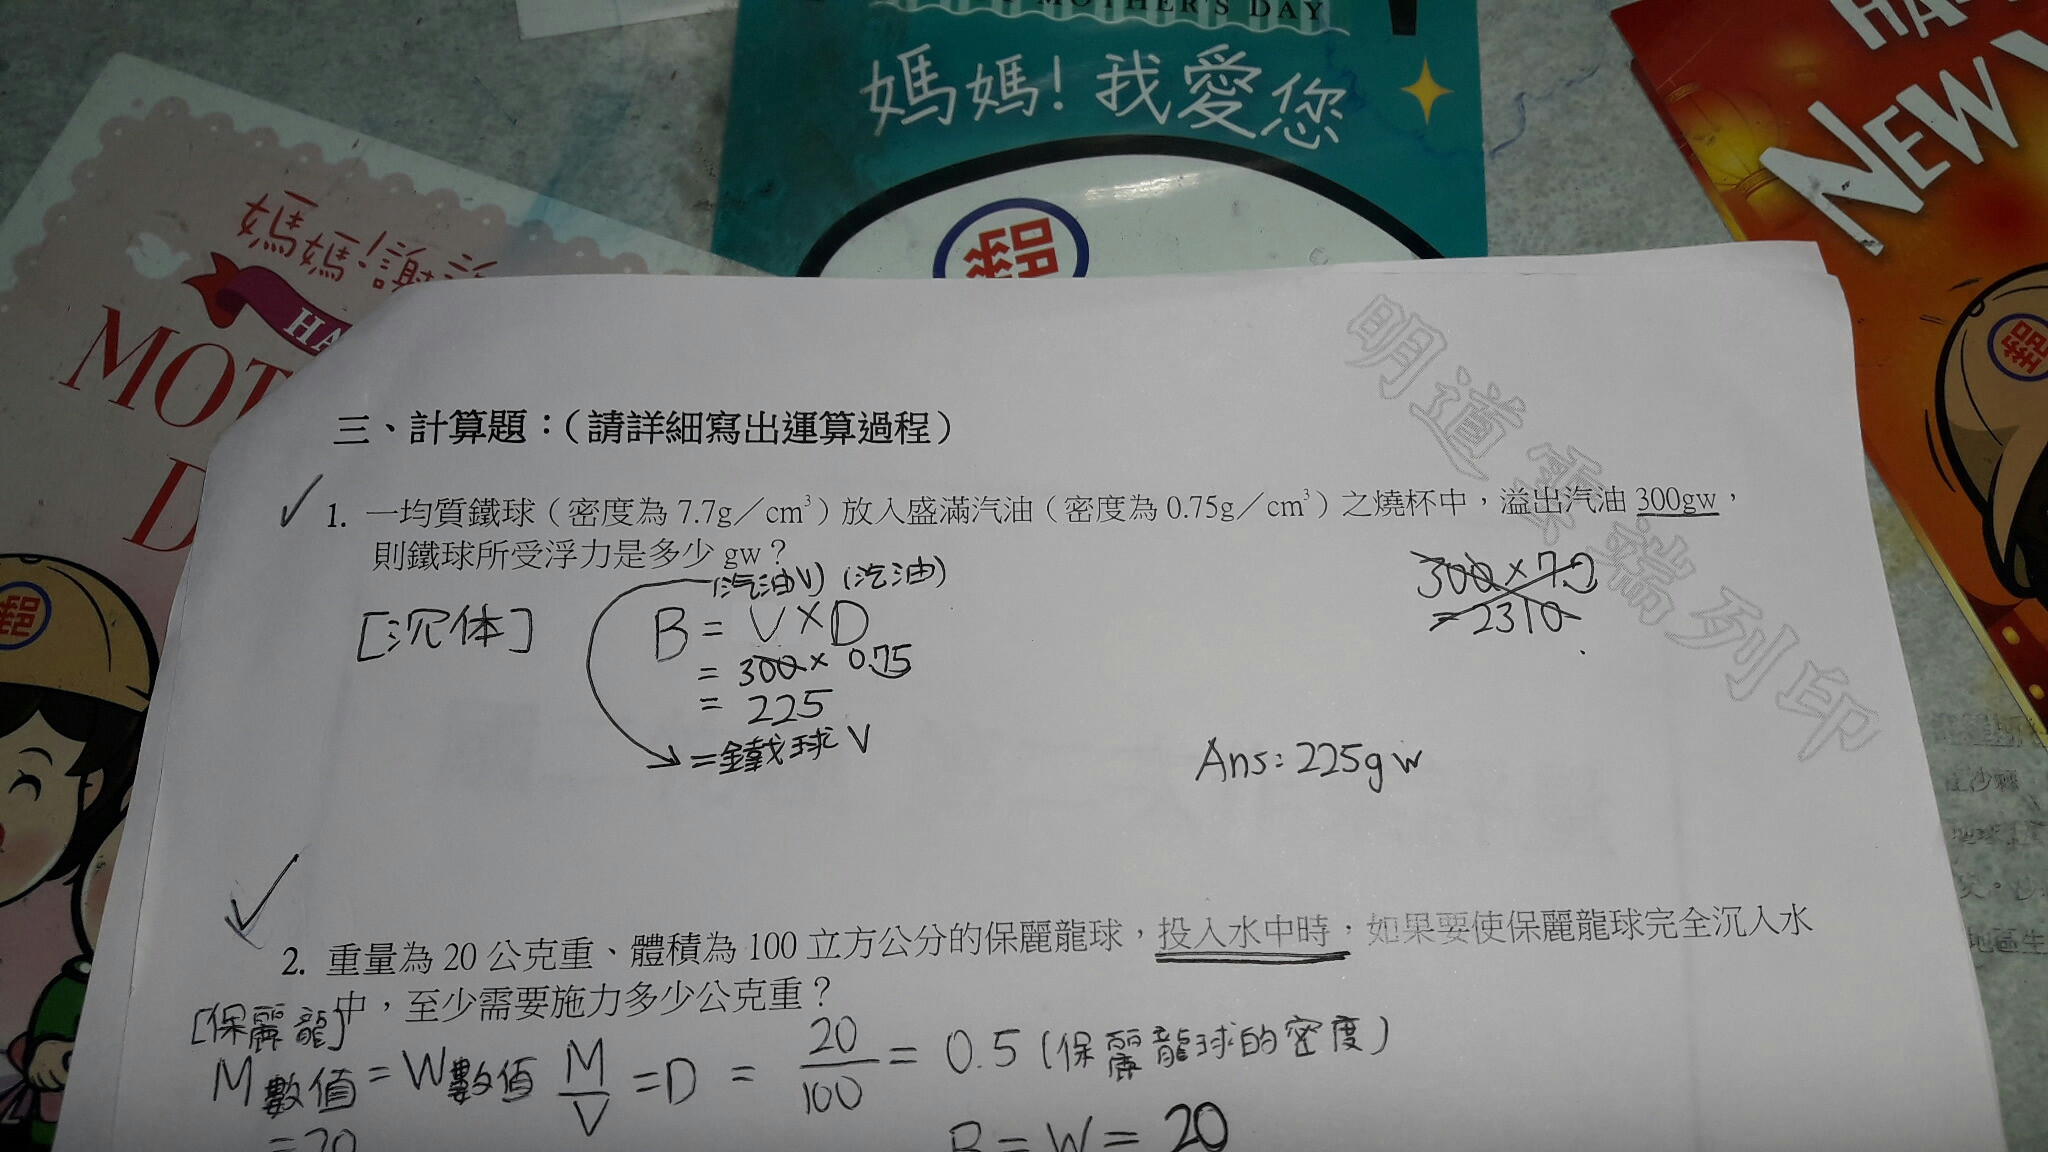 MOTHER'S DAY
媽媽！我愛您
NEW
媽媽謝謝
HA
MOT
D
郵
明道雲端列印
三、計算題：（請詳細寫出運算過程）
✓ 1. 一均質鐵球（密度為 7.7g／cm³）放入盛滿汽油（密度為 0.75g／cm³）之燒杯中，溢出汽油 300gw，
則鐵球所受浮力是多少 gw？
(汽油V) (汽油)
300×7.7
=2310
[沉体]
B = V×D
= 300×0.75
= 225
=鐵球V
Ans: 225gw
✓ 2. 重量為 20 公克重、體積為 100 立方公分的保麗龍球，投入水中時，如果要使保麗龍球完全沉入水
中，至少需要施力多少公克重？
[保麗龍]
M數值 = W數值 M/V = D = 20/100 = 0.5 (保麗龍球的密度)
=20
B = W = 20